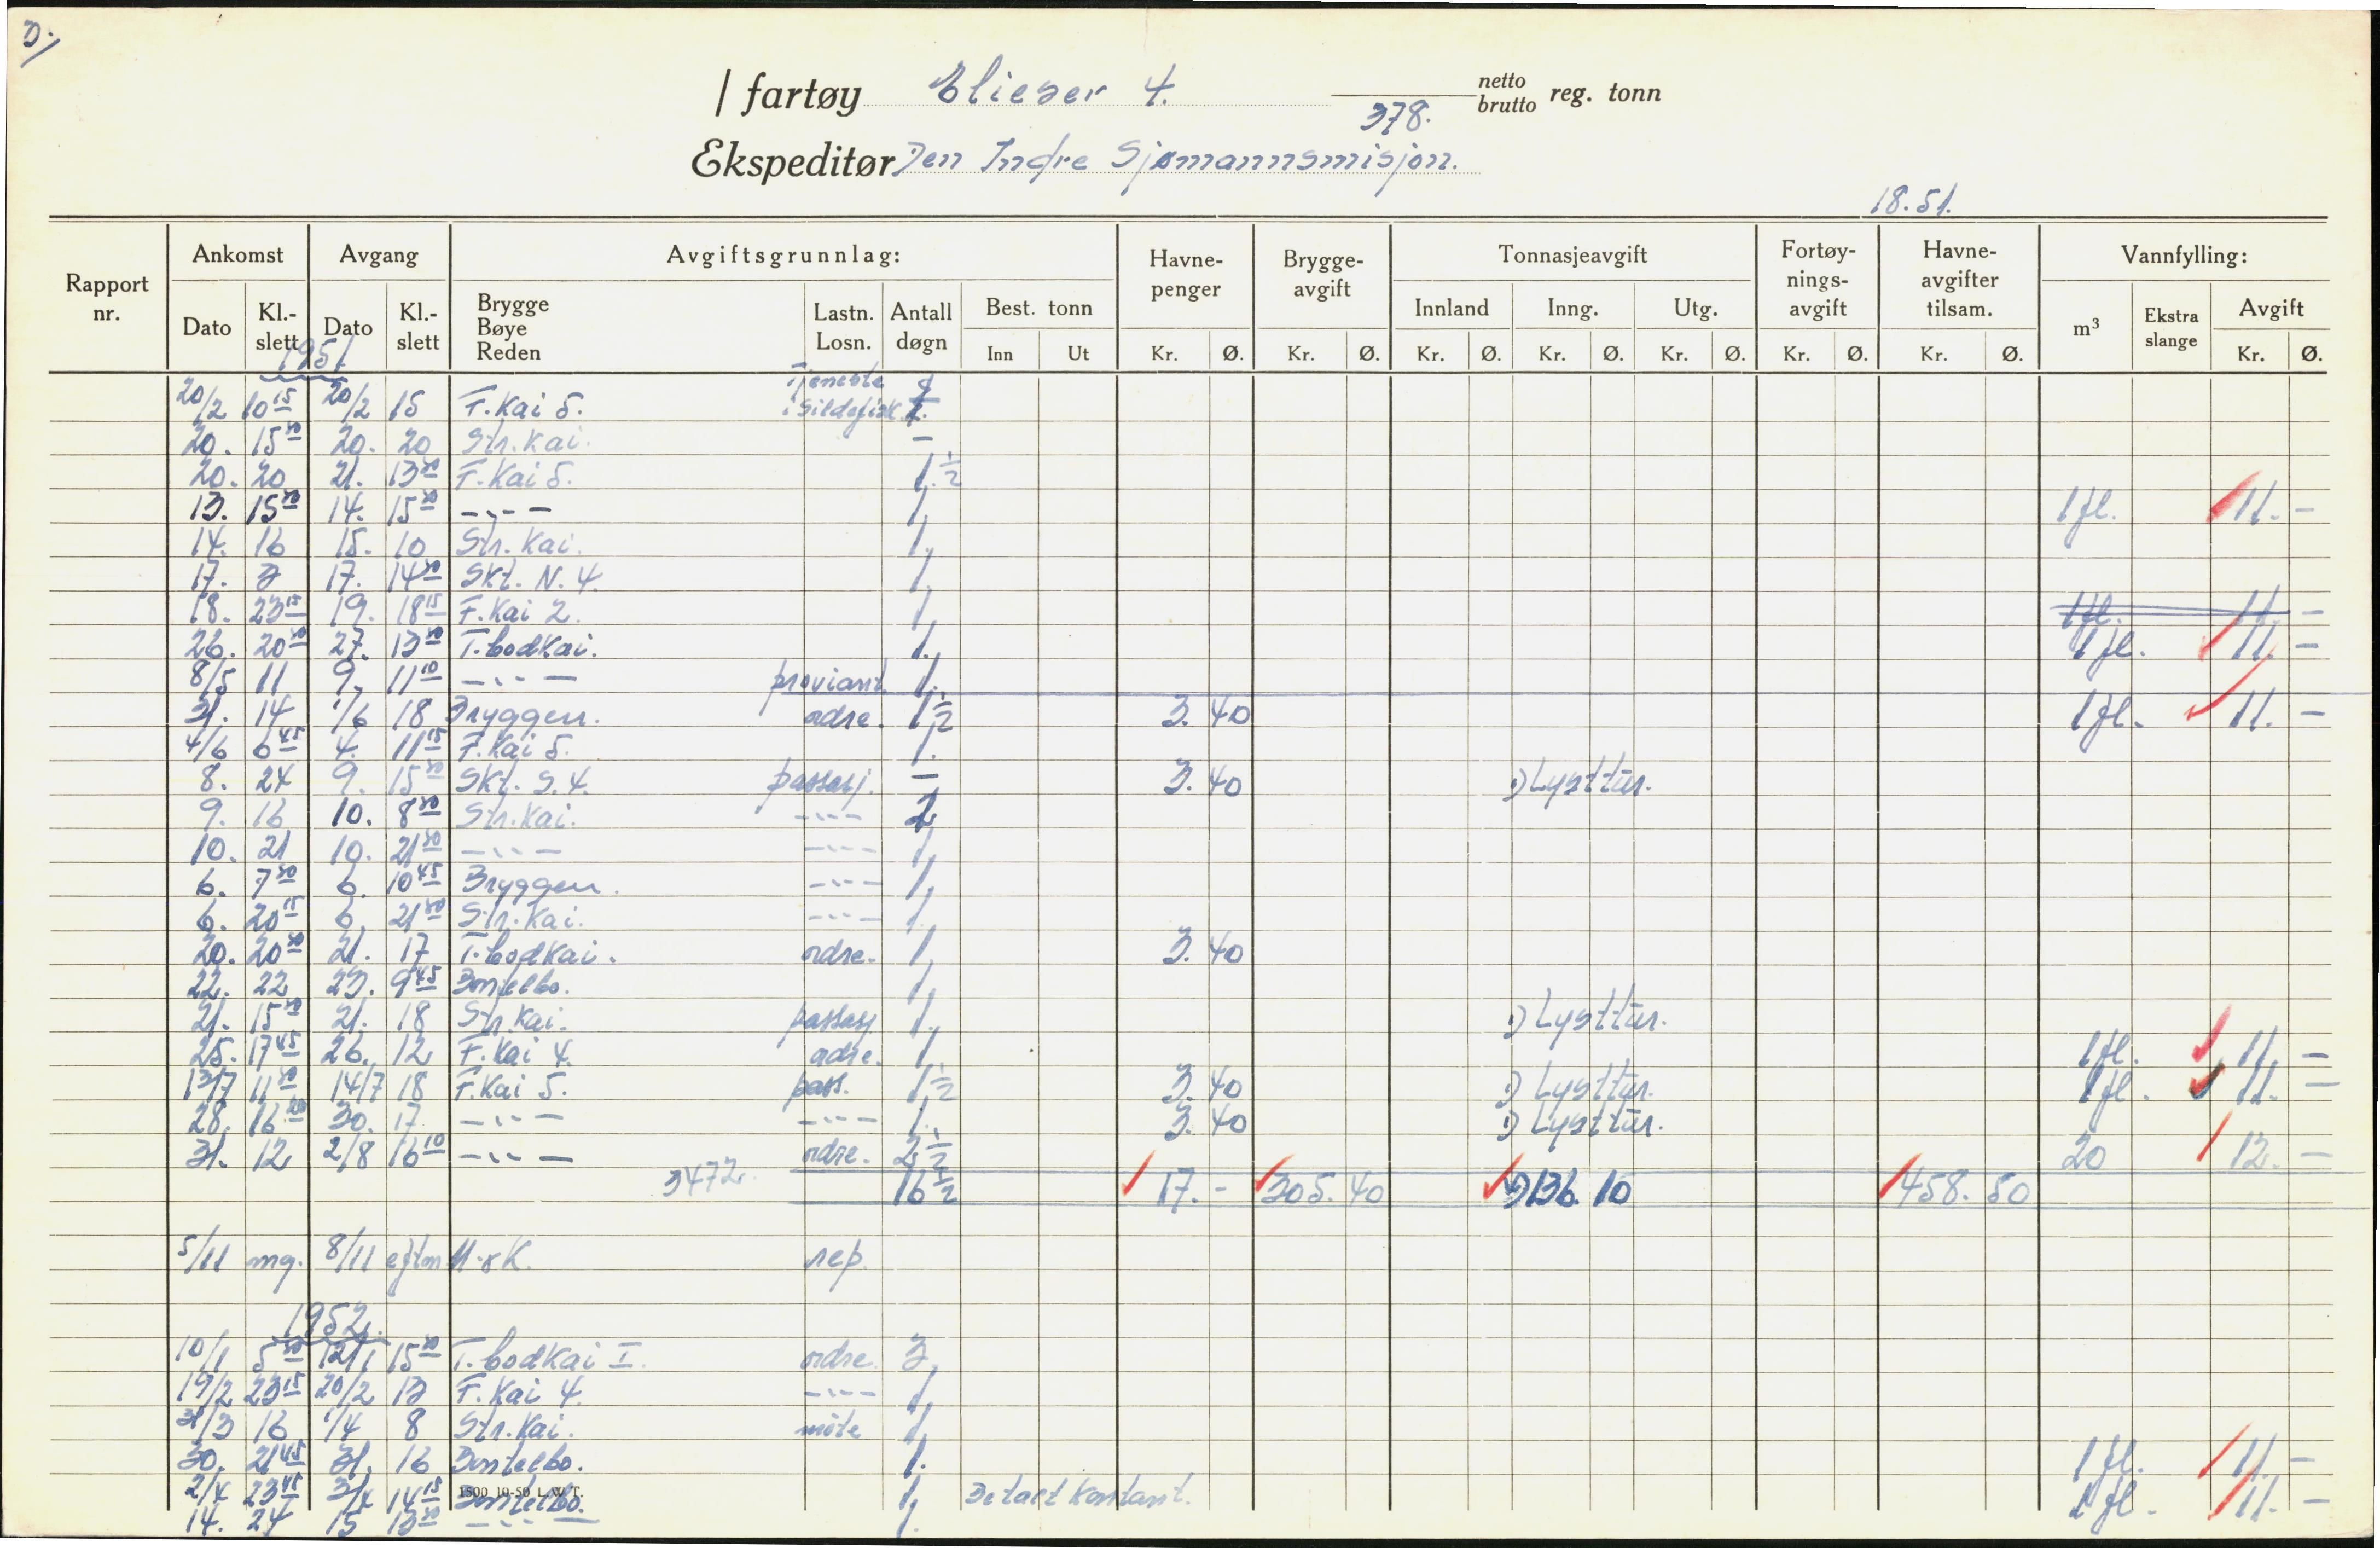 D./
/ fartøy Elieser 4. 378. netto brutto reg. tonn
Ekspeditør Den Indre Sjømannsmisjon.
18.51.
Rapport nr. Ankomst Avgang Avgiftsgrunnlag: Havne- penger Brygge- avgift Tonnasjeavgift Fortøy- nings- avgift Havne- avgifter tilsam. Vannfylling:
Dato Kl.- slett Dato Kl.- slett Brygge Bøye Reden Lastn. Losn. Antall døgn Best. tonn Innland Inng. Utg. m³ Ekstra slange Avgift
Inn Ut Kr. Ø. Kr. Ø. Kr. Ø. Kr. Ø. Kr. Ø. Kr. Ø. Kr. Ø. Kr. Ø.
1951
20/2 10 15 20/2 15 F. Kai 5. Tjeneste i Sildefisk.
20. 15 30 20. 20 Str. Kai. —
20. 20 21. 13 30 F. Kai 5. 1. 1/2
13. 15 30 14. 15 30 -"- 1. 1 fl. 11. —
14. 16 15. 10 Str. Kai. 1.
17. 7 17. 14 30 Skt. N. 4. 1.
18. 23 15 19. 18 15 F. Kai 2. 1. 1 fl. 11. —
26. 20 30 27. 13 30 T. bodkai. 1. 1 fl. 11. —
8/5 11 9. 11 10 -"- proviant 1.
31. 14 1/6 18 Bryggen. ordre. 1 1/2 3. 40 1 fl. 11. —
4/6 6 45 4. 11 15 F. Kai 5. 1.
8. 24 9. 15 30 Skt. S. 4. passasj. — 3. 40 :) Lysttur.
9. 16 10. 8 30 Str. Kai. -"- 2
10. 21 10. 21 30 -"- -"- 1.
6. 7 30 6. 10 45 Bryggen. -"- 1.
6. 20 15 6. 21 30 Str. Kai. -"- 1.
20. 20 30 21. 17 T. bodkai. ordre. 1. 3. 40
22. 22 23. 9 45 Bontelbo. 1.
21. 15 30 21. 18 Str. Kai. passasj. 1. :) Lysttur.
25. 17 45 26. 12 F. Kai 4. ordre. 1. 1 fl. 11. —
13/7 11 30 14/7 18 F. Kai 5. pass. 1 1/2 3. 40 :) Lysttur. 1 fl. 11. —
28. 16 30 30. 17 -"- -"- 1. 3. 40 :) Lysttur.
31. 12 2/8 16 10 -"- ordre. 2 1/2 20 12. —
3472. 16 1/2 17. - 305. 40 136. 10 458. 50
5/11 mg. 8/11 eftm M. & K. rep.
1952.
10/1 5 30 12/1 15 30 T. bodkai I. ordre. 3.
19/2 23 15 20/2 13 F. Kai 4. -"- 1.
31/3 16 1/4 8 Str. Kai. møte 1.
30. 21 45 31. 16 Bontelbo. 1. 1 fl. 11. —
2/4 23 45 3/4 14 15 Bontelbo. 1. Betalt kontant. 1 fl. 11. —
1500 10-50 L.W.T.
14. 24 15 13 30 -"- 1.